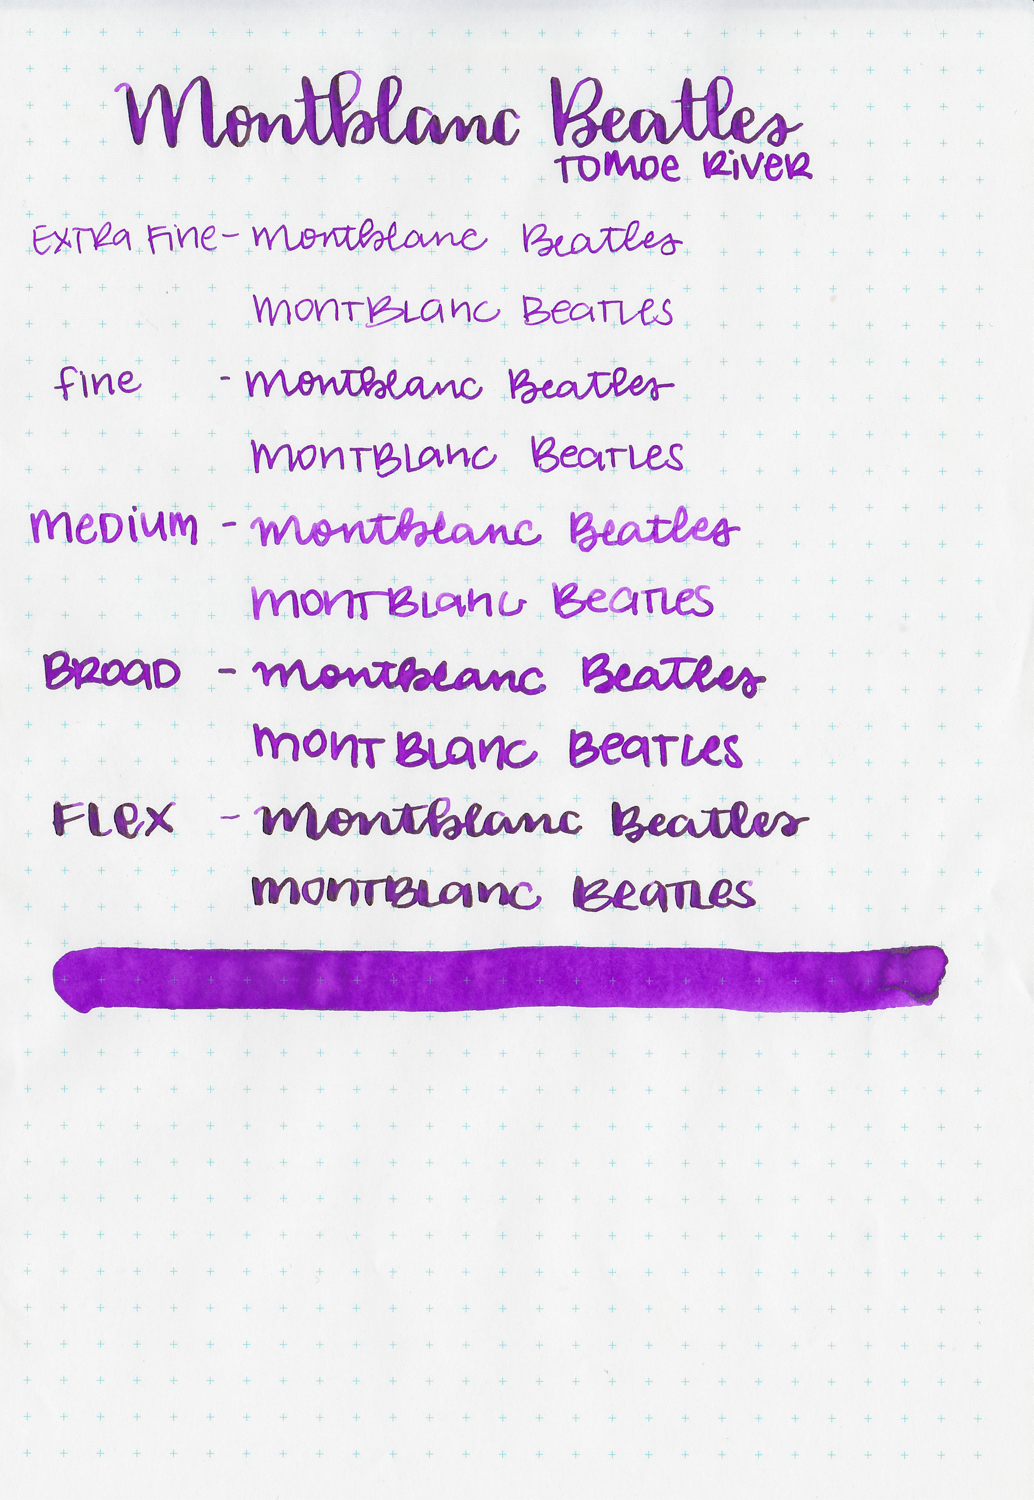 Montblanc Beatles
Tomoe River
Extra Fine - Montblanc Beatles
Montblanc Beatles
fine - Montblanc Beatles
Montblanc Beatles
Medium - Montblanc Beatles
Montblanc Beatles
Broad - Montblanc Beatles
Mont Blanc Beatles
Flex - Montblanc Beatles
Montblanc Beatles